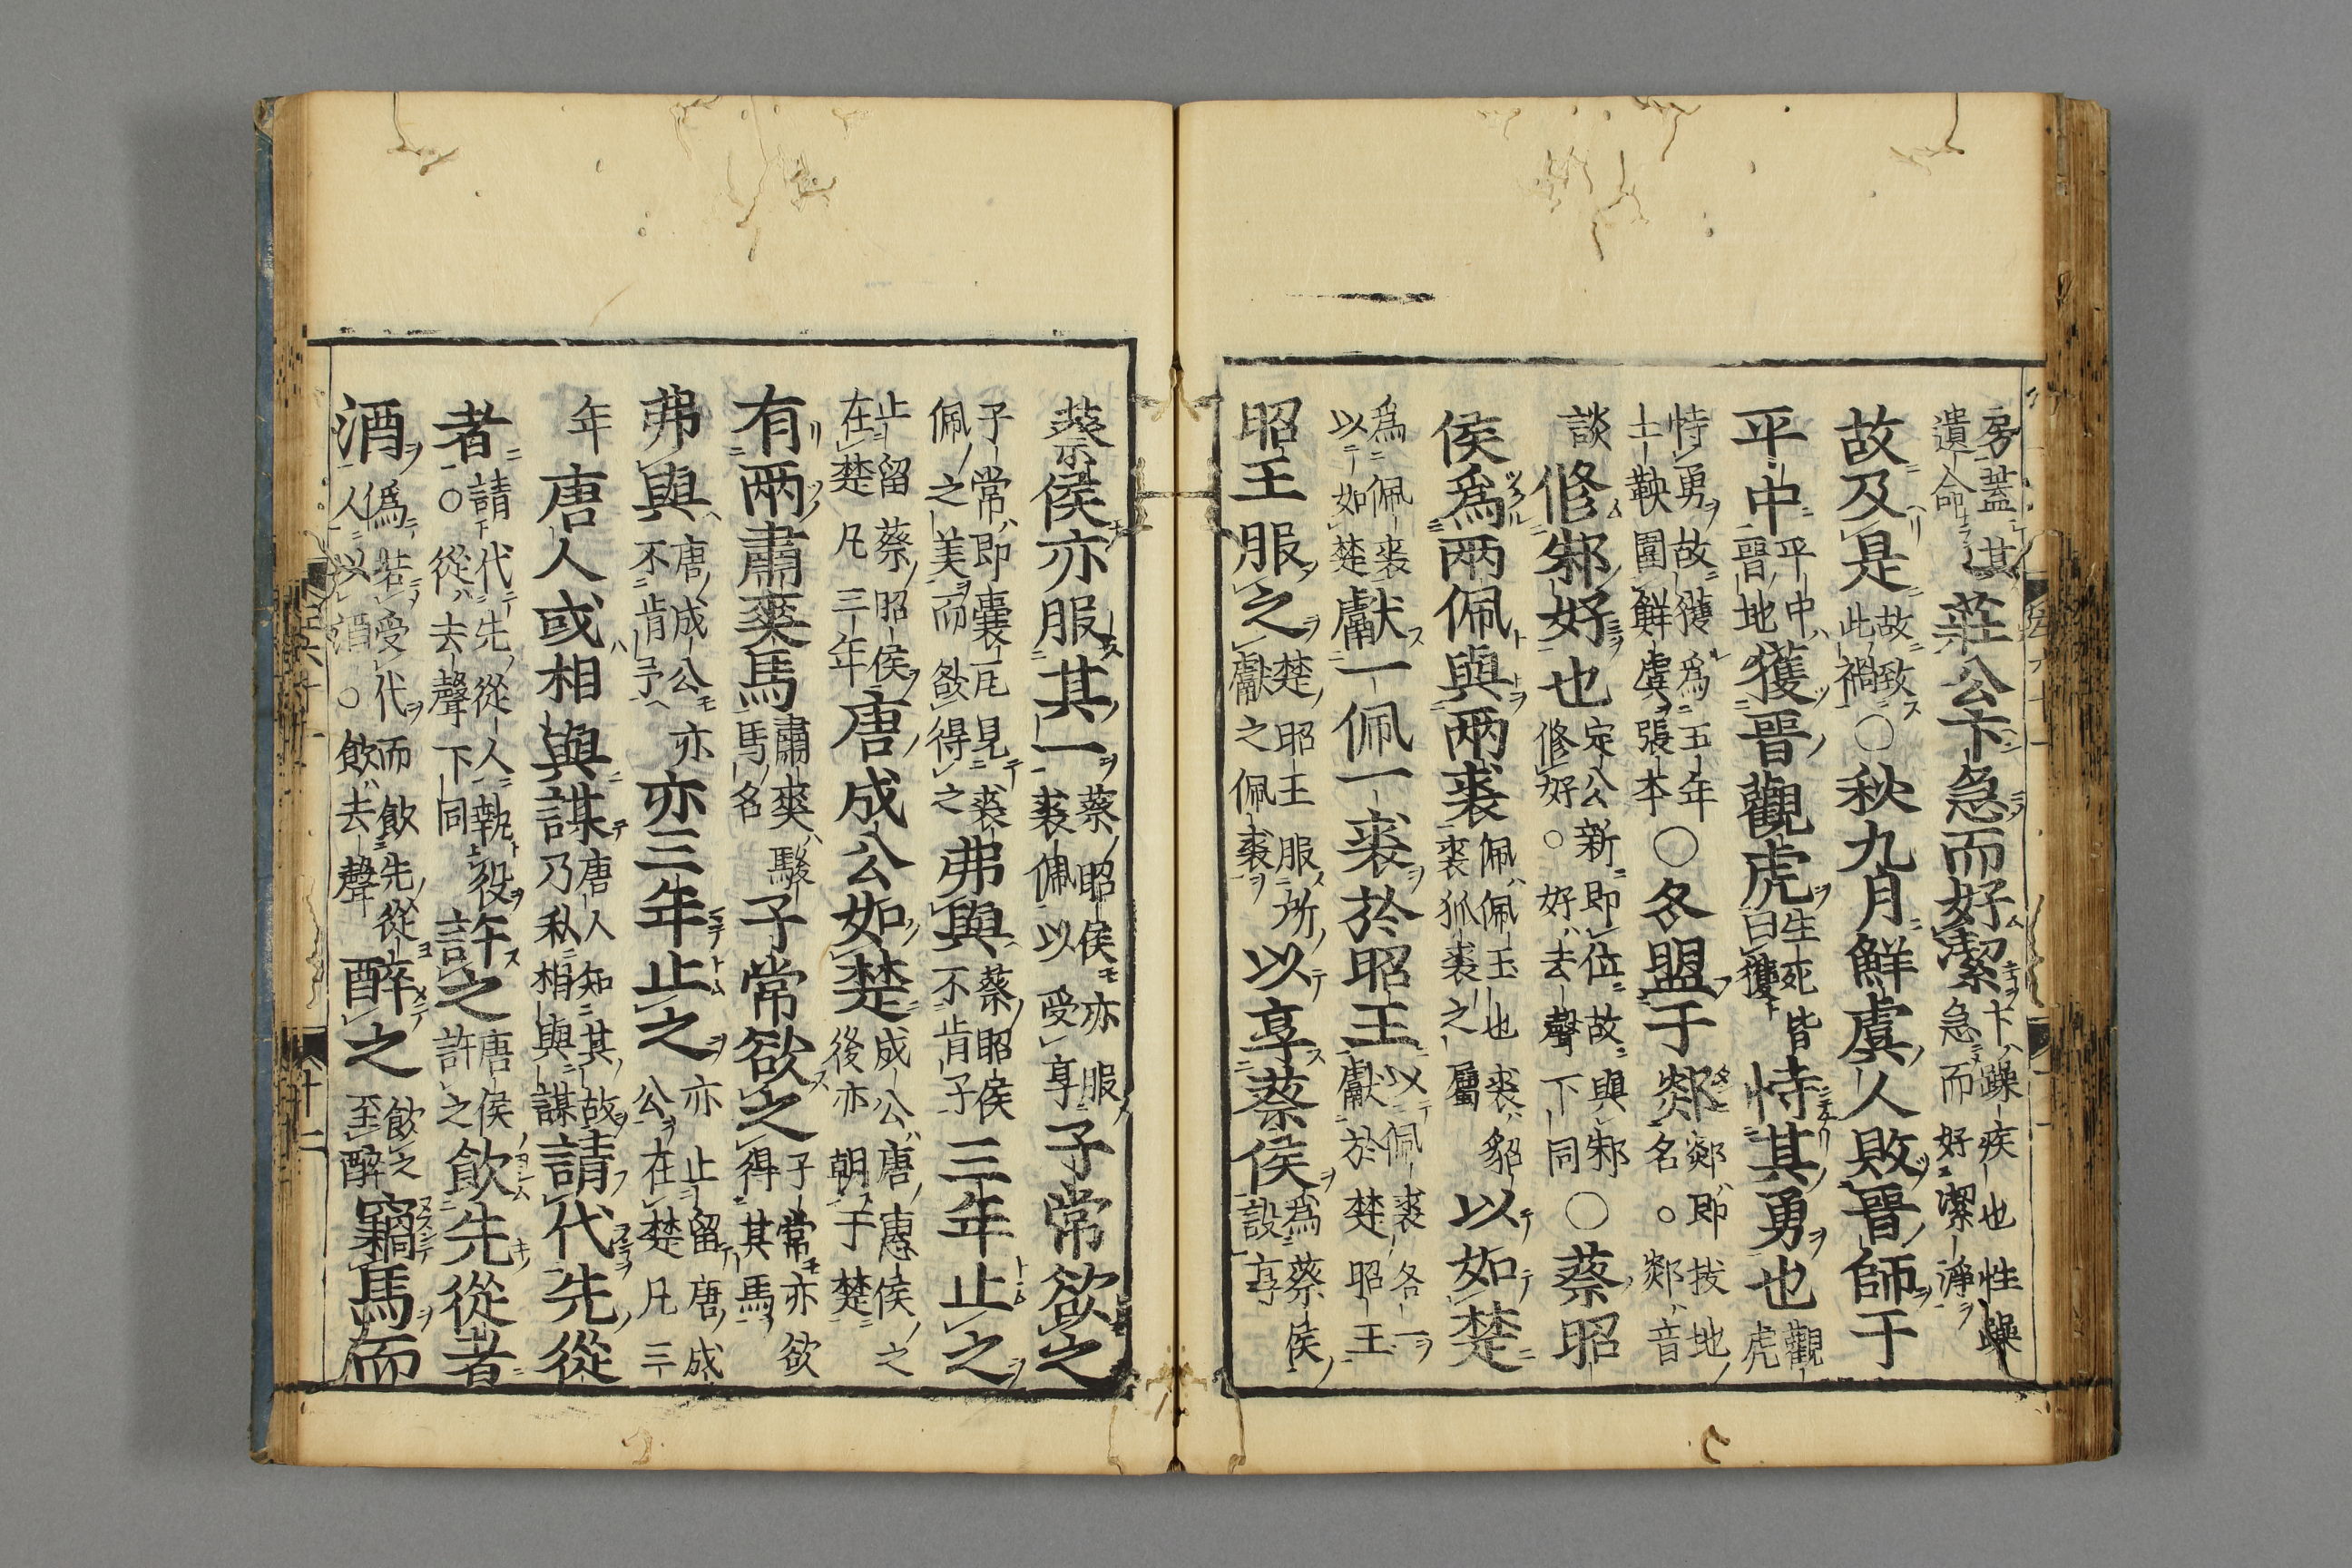 房蓋其遺命莊公卞急而好潔卞躁疾也性躁急而好潔淨
故及是故致此禍○秋九月鮮虞人敗晉師于
平中平中晉地獲晉觀虎生死皆曰獲恃其勇也觀虎
恃勇故獲為五年士鞅圍鮮虞張本○冬盟于郯郯即拔地名○郯音
談修邾好也定公新即位故與邾修好○好去聲下同○蔡昭
侯為兩佩與兩裘佩佩玉也裘貂裘狐裘之屬以如楚
為佩裘以如楚獻一佩一裘於昭王以佩裘各一獻於楚昭王
昭王服之楚昭王服所獻之佩裘以享蔡侯為蔡侯設享
蔡侯亦服其一蔡昭侯亦服裘佩以受享子常欲之
子常即囊瓦見裘佩之美而欲得之弗與蔡昭侯不肯子三年止之
止留蔡昭侯在楚凡三年唐成公如楚成公唐惠侯之後亦朝于楚
有兩肅爽馬肅爽駿馬名子常欲之子常亦欲得其馬
弗與唐成公亦不肯予亦三年止之亦止留唐成公在楚凡三
年唐人或相與謀唐人知其故乃私相與謀請代先從
者請代先從人執役○從去聲下同許之唐侯許之飲先從者
酒偽若受代而飲先從人以酒○飲去聲醉之飲之至醉竊馬而
十二